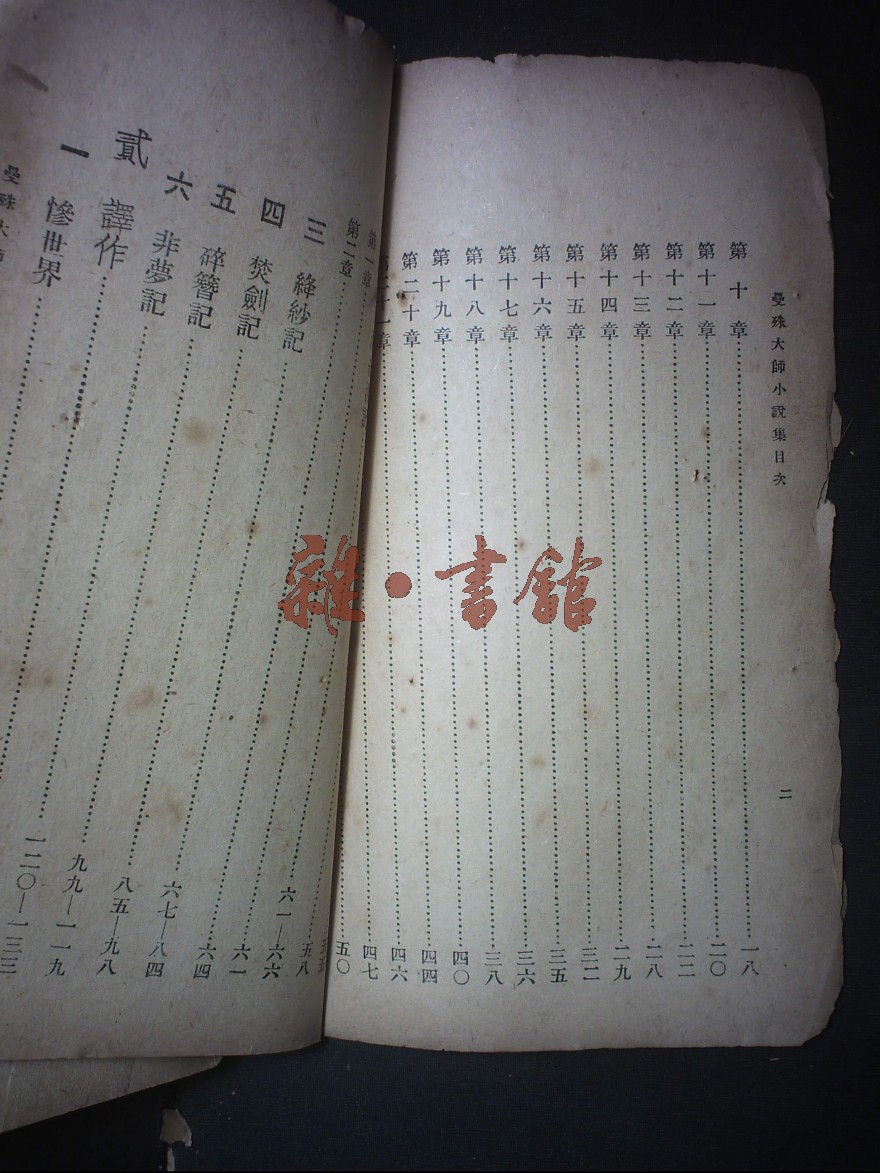 曼殊大師小說集目次
二
第十章……一八
第十一章……二〇
第十二章……二二
第十三章……二八
第十四章……二九
第十五章……三二
第十六章……三五
第十七章……三六
第十八章……三八
第十九章……四〇
第二十章……四四
第二十一章……四六
四七
五〇
五八
六一
六四
第一章
第二章……六一—六六
三 絳紗記……六七—八四
四 焚劍記……八五—九八
五 碎簪記……九九—一一九
六 非夢記……一二〇—一三三
貳 譯作
一 慘世界
曼殊大師
雜·書館